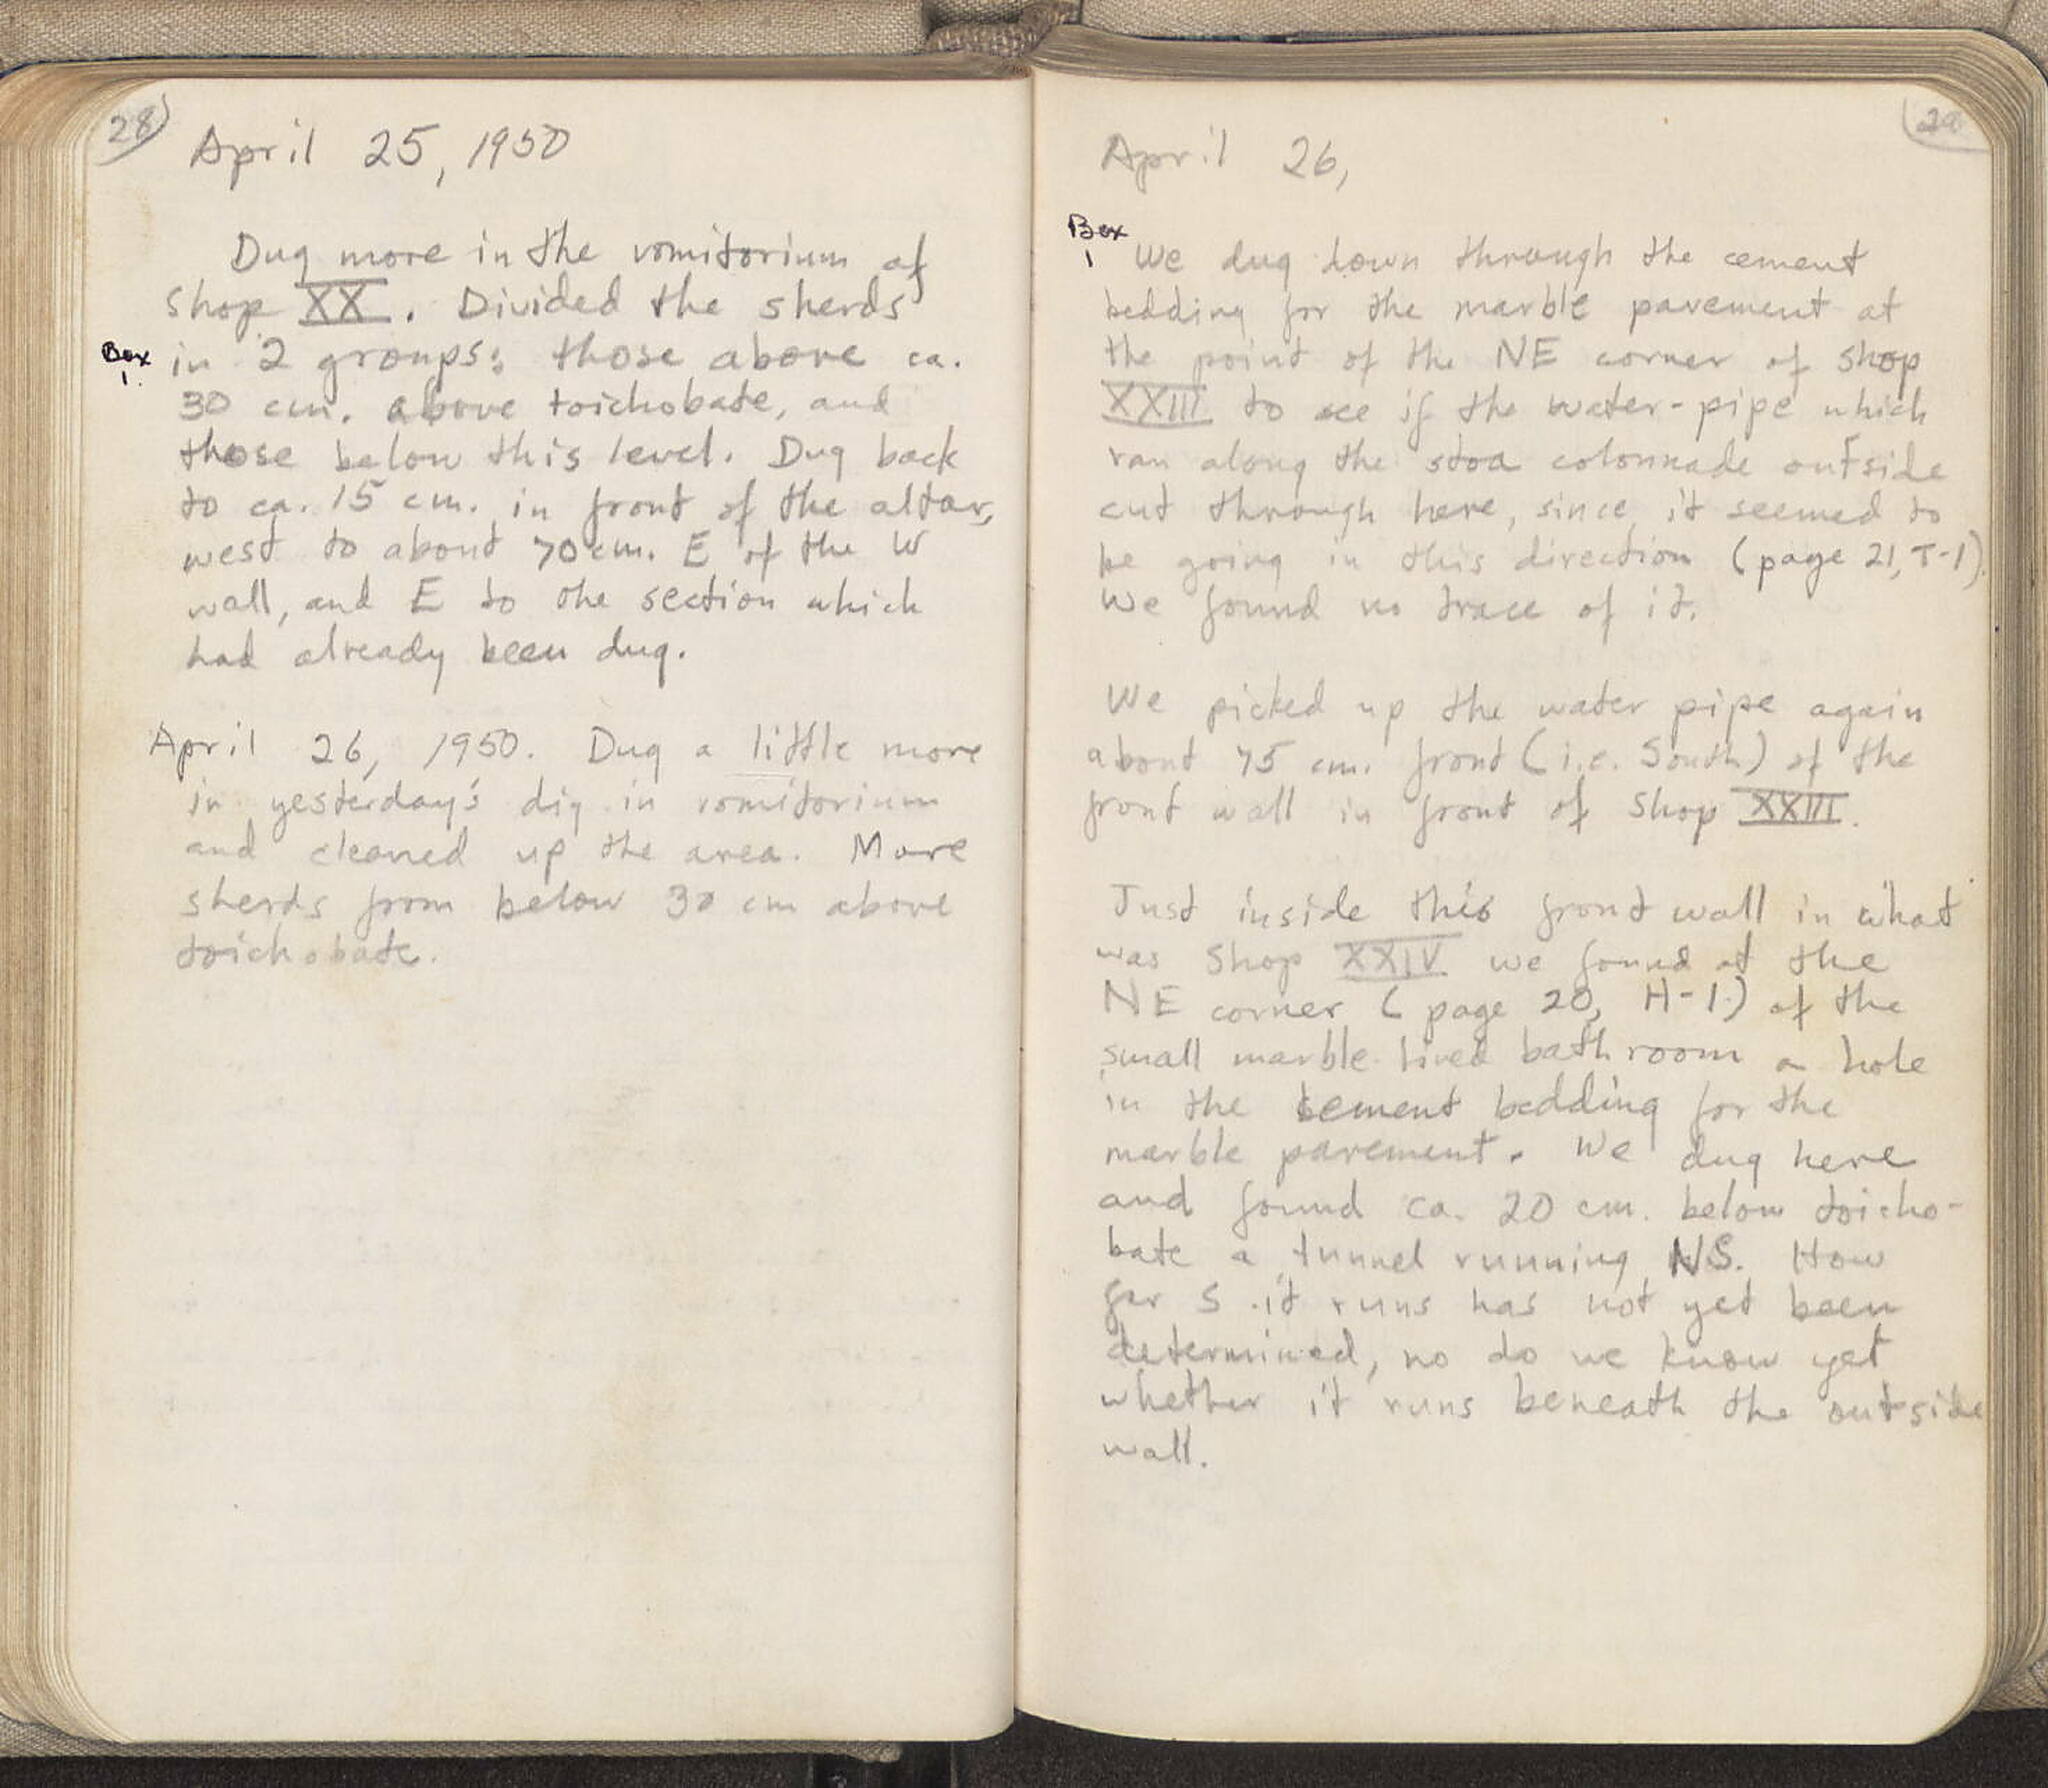 28
April 25, 1950
Dug more in the vomitorium of
shop XX. Divided the sherds
Box 1.
in 2 groups: those above ca.
30 cm. above toichobate, and
those below this level. Dug back
to ca. 15 cm. in front of the altar,
west to about 70 cm. E of the W
wall, and E to the section which
had already been dug.
April 26, 1950. Dug a little more
in yesterday's dig in vomitorium
and cleaned up the area. More
sherds from below 30 cm above
toichobate.
29
April 26,
Box 1
We dug down through the cement
bedding for the marble pavement at
the point of the NE corner of shop
XXIII to see if the water-pipe which
ran along the stoa colonnade outside
cut through here, since it seemed to
be going in this direction (page 21, T-1).
We found no trace of it.
We picked up the water pipe again
about 75 cm. front (i.e. South) of the
front wall in front of shop XXIII.
Just inside this front wall in what
was shop XXIV we found at the
NE corner (page 20, H-1) of the
small marble lined bathroom a hole
in the cement bedding for the
marble pavement. We dug here
and found ca. 20 cm. below toicho-
bate a tunnel running NS. How
far S it runs has not yet been
determined, no do we know yet
whether it runs beneath the outside
wall.